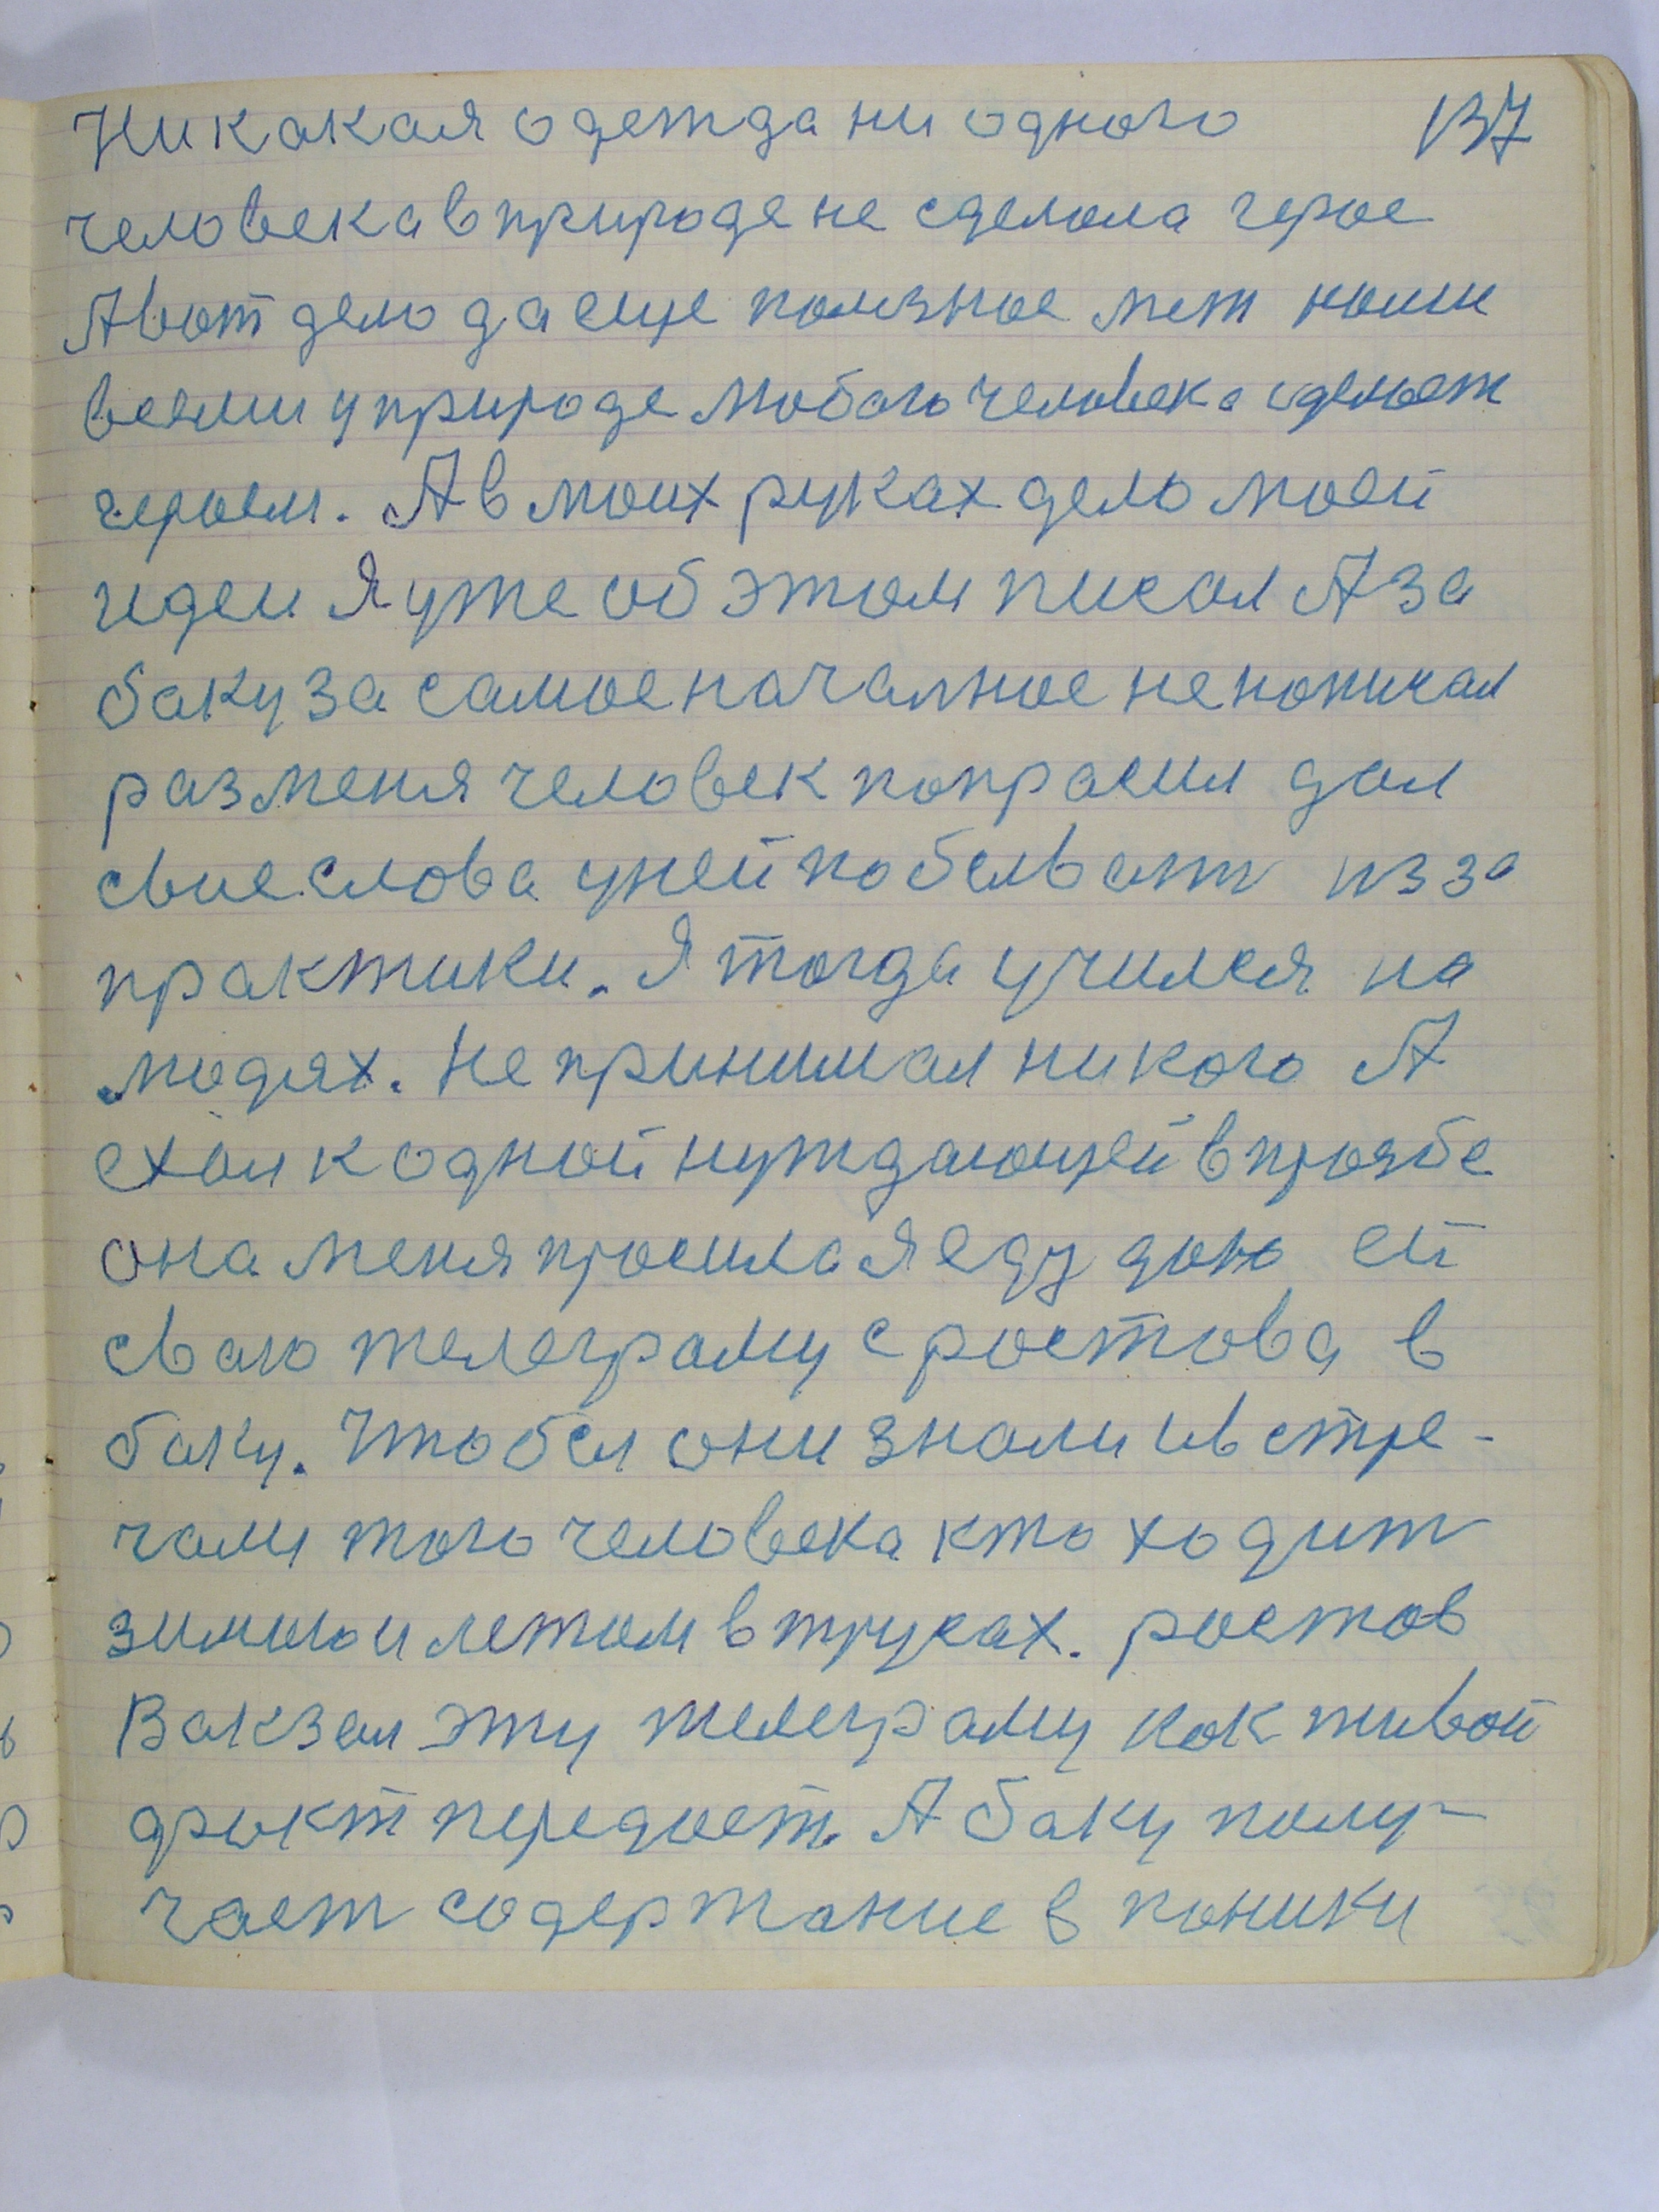 Никакая одежда ни одного 137
человека в природе не сделала герое
А вот дело да еще полезное меж ношими
всеми у природе любого человека сделает
героем. А в моих руках дело моей
идеи Я уже об этом писал А за
баку за самое началное не попичал
раз меня человек попрасил дал
свие слова у ней побывать из за
практики. Я тогда учился на
людях. Не принимал никого А
ехал к одной нуждающей в прозбе
она меня просила Я еду даю ей
сваю телеграму с ростова в
баку. Чтобы они знали и встре-
чали того человека кто ходит
зимою и летом в трусах. ростов
Вакзал эту телеграму как живой
факт передает. А баку полу-
чает содержание в паники